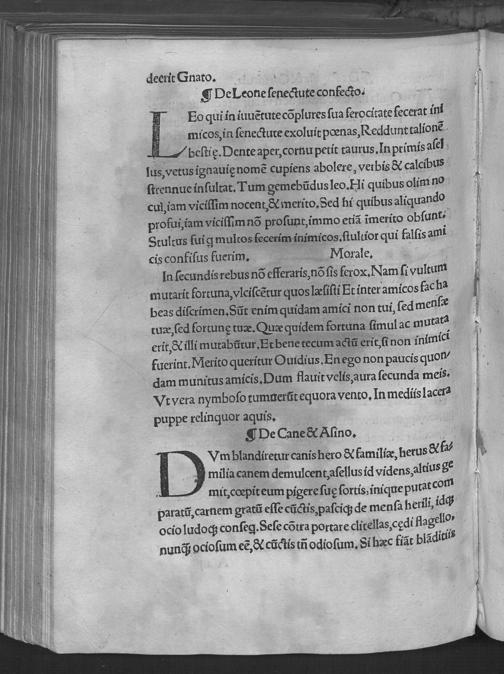 deerit Gnato.
¶ De Leone senectute confecto.
LEo qui in iuuẽtute cõplures sua ferocitate fecerat ini
micos, in senectute exoluit pœnas, Reddunt talionẽ
bestię. Dente aper, cornu petit taurus. In primis asel
lus, vetus ignauię nomẽ cupiens abolere, verbis & calcibus
strennue insultat. Tum gemebũdus leo. Hi quibus olim no
cui, iam vicissim nocent, & merito. Sed hi quibus aliquando
profui, iam vicissim nõ prosunt, immo etiã ĩmerito obsunt.
Stultus fui q multos fecerim inimicos, stultior qui falsis ami
cis confisus fuerim. Morale.
In secundis rebus nõ efferaris, nõ sis ferox. Nam si vultum
mutarit fortuna, vlciscẽtur quos læsisti Et inter amicos fac ha
beas discrimen. Sũt enim quidam amici non tui, sed mensæ
tuæ, sed fortunę tuæ. Quæ quidem fortuna simul ac mutata
erit, & illi mutabũtur. Et bene tecum actũ erit, si non inimici
fuerint. Merito queritur Ouidius. En ego non paucis quon/
dam munitus amicis. Dum flauit velis, aura secunda meis.
Vt vera nymboso tumuerũt equora vento. In mediis lacera
puppe relinquor aquis.
¶ De Cane & Asino.
DVm blandiretur canis hero & familiæ, herus & fa/
milia canem demulcent, asellus id videns, altius ge
mit, cœpit eum pigere suę sortis, inique putat com
paratũ, carnem gratũ esse cũctis, pasciq; de mensa herili, idq;
ocio ludoq; conseq. Sese cõtra portare clitellas, cędi flagello,
nunq̃ ociosum eẽ, & cũctis tñ odiosum. Si hæc fiãt blãditiis